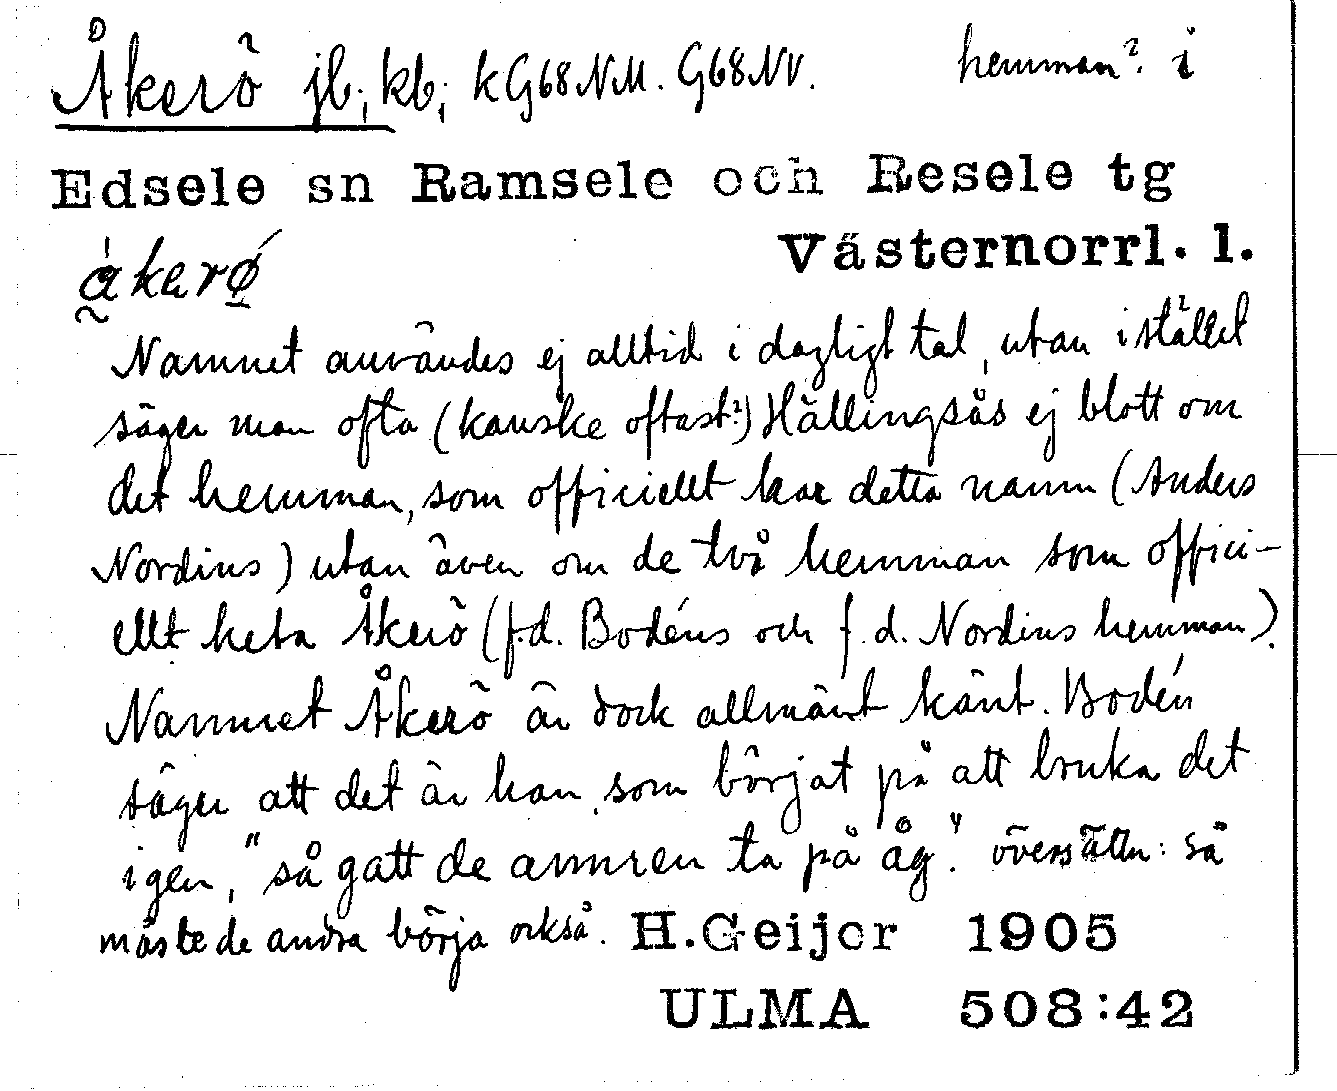 Åkerö jb; kb; kG68NM. G68NV. hemman? i
Edsele sn Ramsele och Resele tg
Västernorrl. l.
åkerø
Namnet användes ej alltid i dagligt tal, utan i stället
säger man ofta (kanske oftast?) Hällingsås ej blott om
det hemman, som officiellt har detta namn (Anders
Nordius) utan även om de två hemman som offici-
ellt heta Åkerö (f.d. Bodéns och f.d. Nordins hemman).
Namnet Åkerö är dock allmänt känt. Bodén
säger att det är han, som börjat på att bruka det
igen, "så gatt de annren ta på åg". översättn: så
måste de andra börja också. H.Geijer 1905
ULMA 508:42